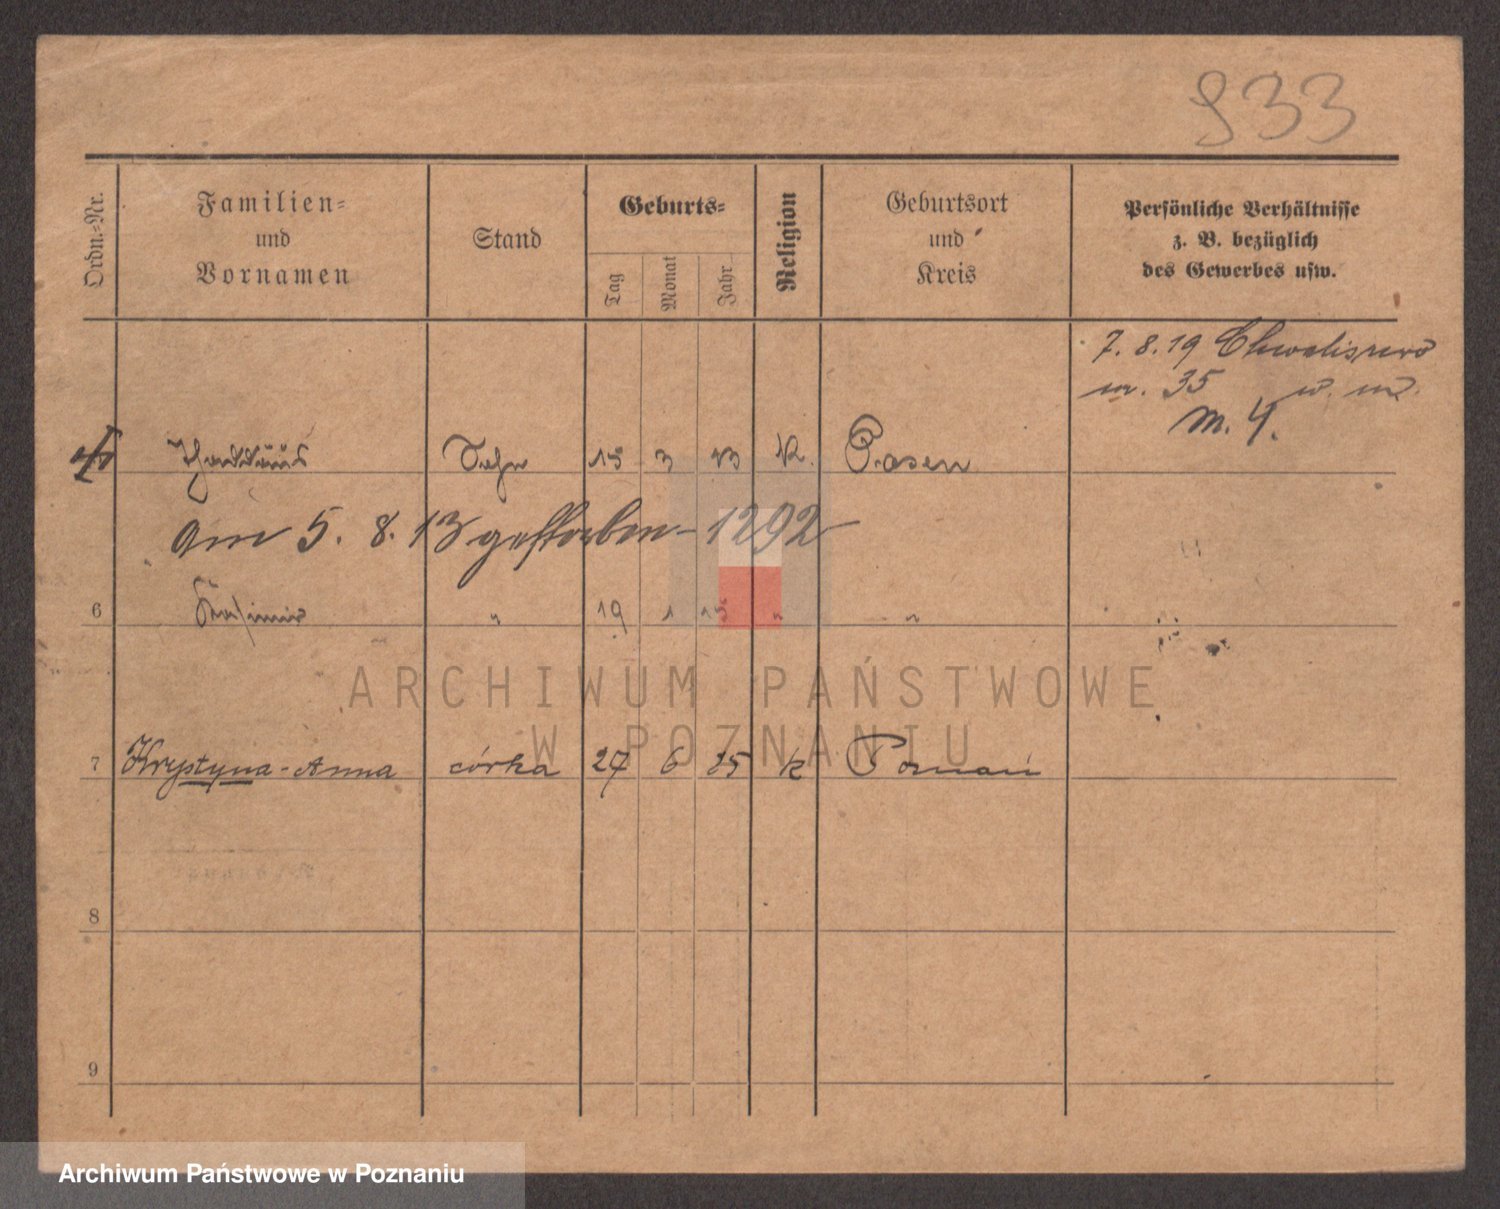 933
Ordn.-Nr.
Familien-
und
Vornamen
Stand
Geburts-
Tag
Monat
Jahr
Religion
Geburtsort
und
Kreis
Persönliche Verhältnisse
z. B. bezüglich
des Gewerbes usw.
7. 8. 19 Chwaliszewo
nr. 35
M. 4.
Thaddäus Sohn 15 3 13 K. Posen
am 5. 8. 13 gestorben - 1292
6 Kasimir " 19 1 15 " "
ARCHIWUM PAŃSTWOWE
W POZNANIU
7 Krystyna-Anna córka 27 6 25 k Poznań
8
9
Archiwum Państwowe w Poznaniu